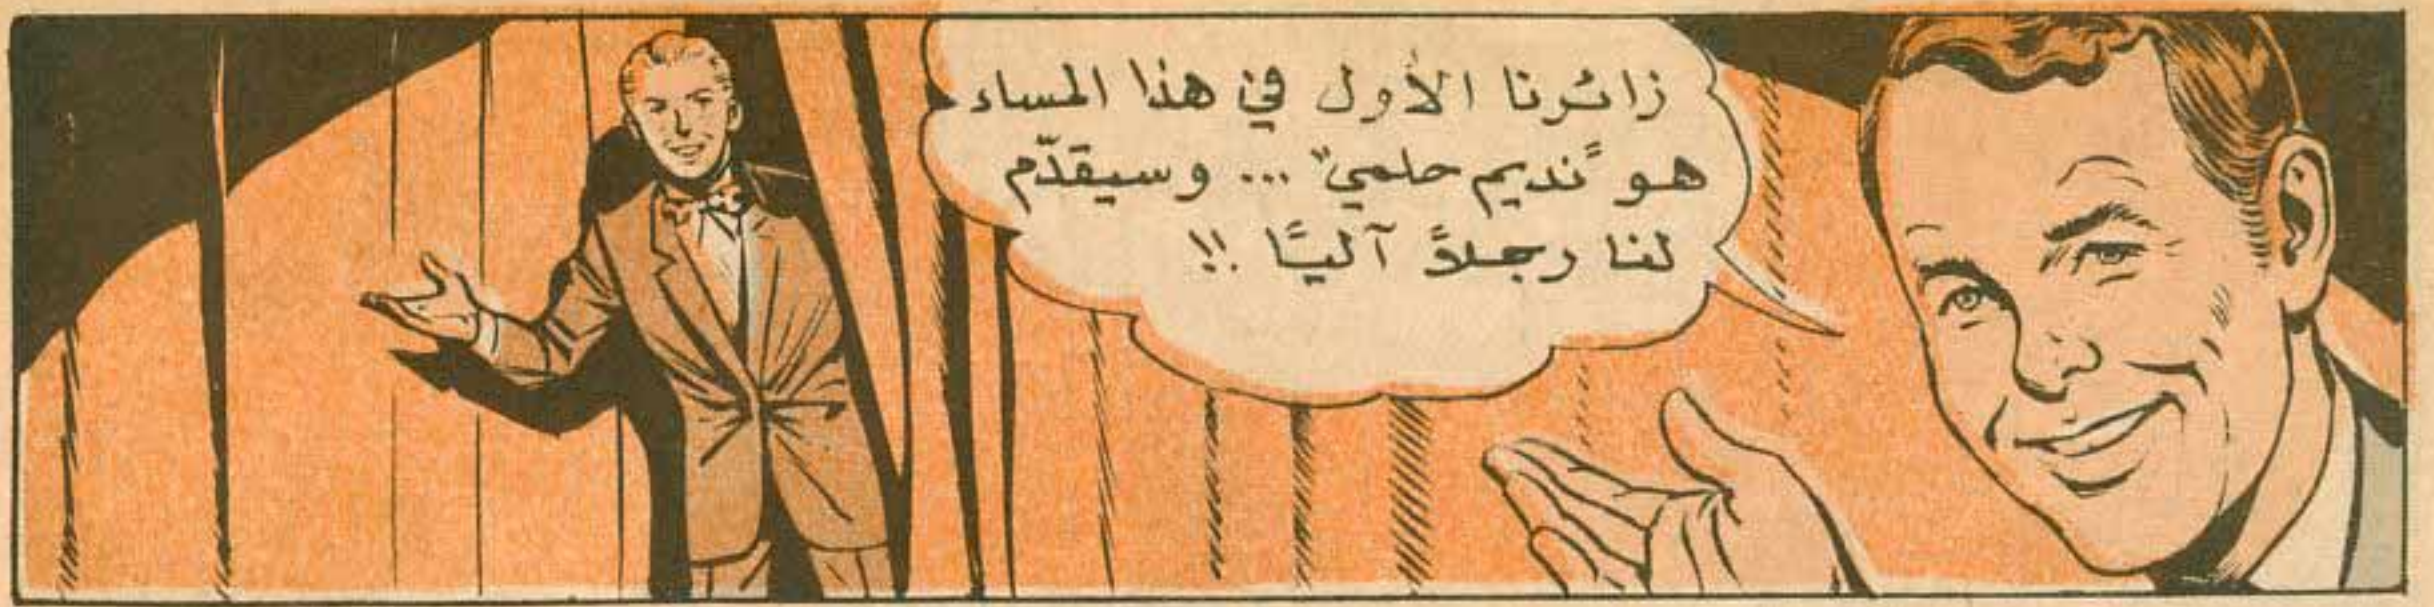 زائرنا الأول في هذا المساء
هو "نديم حلمي" ... وسيقدّم
لنا رجلاً آليًا !!